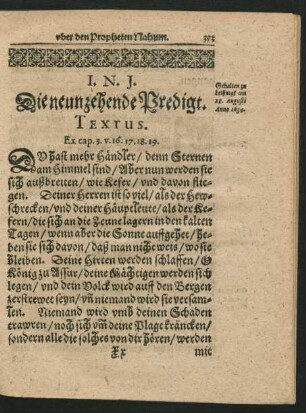 vber den Propheten Nahum. 353
I. N. J.
Die neunzehende Predigt.
Gehalten zu
Leißnigk am
24. Augusti
Anno 1630.
TEXTUS.
Ex cap. 3. v. 16. 17. 18. 19.
DV hast mehr Händler / denn Sternen
am Himmel sind / Aber nun werden sie
sich außbreiten / wie Kefer / vnd davon flie-
gen. Deiner Herren ist so viel / als der Hew-
schrecken / vnd deiner Häuptleute / als der Ke-
fern / die sich an die Zeune lagern in den kalten
Tagen / wenn aber die Sonne auffgehet / he-
ben sie sich davon / daß man nicht weis / wo sie
bleiben. Deine Hirten werden schlaffen / O
König zu Assur / deine Mächtigen werden sich
legen / vnd dein Volck wird auff den Bergen
zerstrewet seyn / vñ niemand wird sie versam-
len. Niemand wird vmb deinen Schaden
trawren / noch sich vm̃ deine Plage kräncken /
sondern alle die solches von dir hören / werden
Xx mit